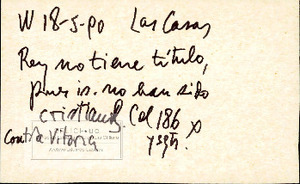 W 18-5-90 Las Casas
Rey no tiene título,
pues is. no han sido
cristians. Col 186
contra Vitoria y sgts.